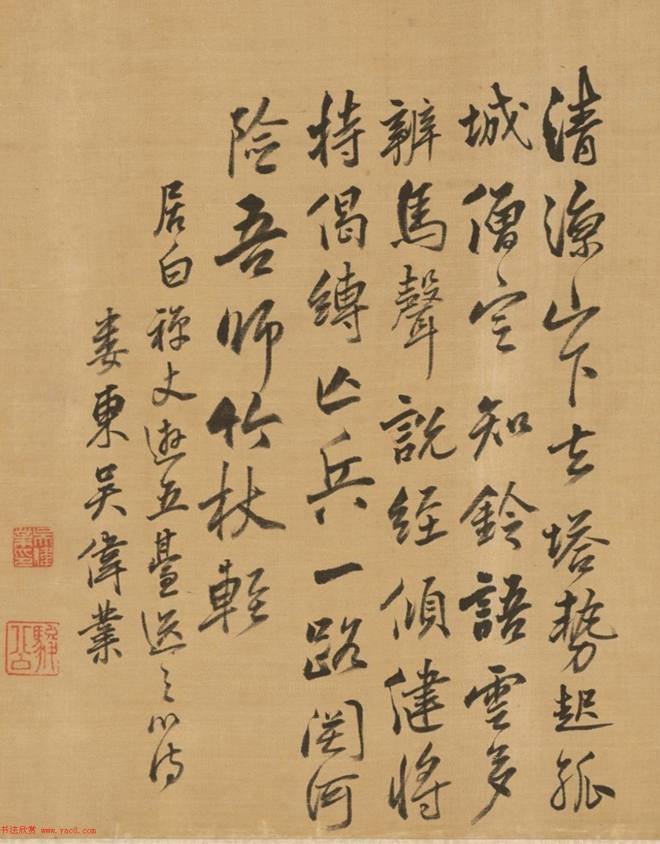 清涼山下去塔勢起孤
城僧定知鈴語雲多
辨馬聲說經傾健將
持偈縛亡兵一路関河
險吾師竹杖輕
居白禪丈遊五臺送之以詩
婁東吳偉業
吳偉業印
駿公
书法欣赏 www.yac8.com